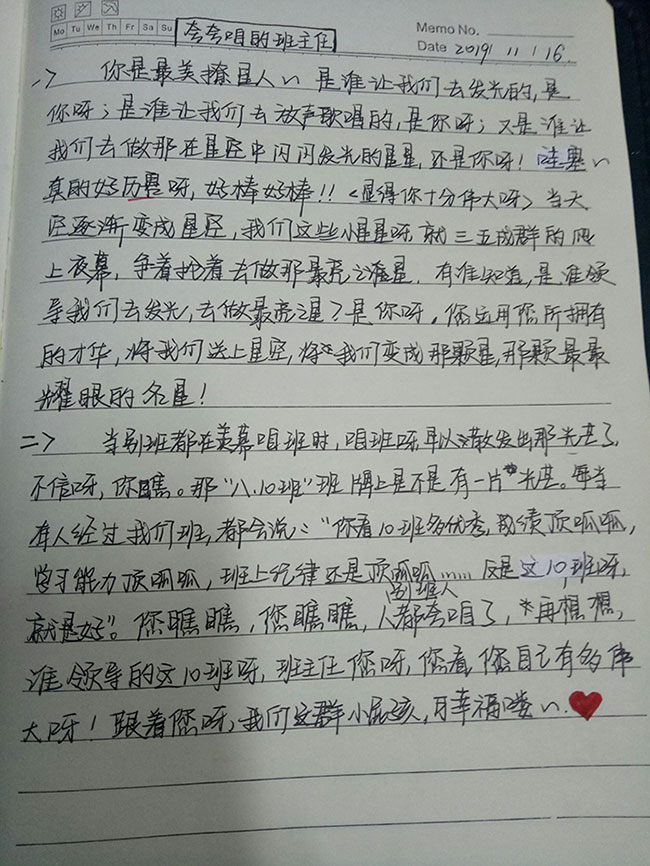 Mo Tu We Th Fr Sa Su
夸夸咱的班主任
Memo No.
Date 2019 / 11 / 16.
一> 你是最美撩星人~ 是谁让我们去发光的,是
你呀;是谁让我们去放声歌唱的,是你呀;又是谁让
我们去做那在星空中闪闪发光的星星,还是你呀!哇塞~
真的好历害呀,好棒好棒!!<显得你十分伟大呀>当天
空逐渐变成星空,我们这些小星星呀就三五成群的爬
上夜幕,争着抢着去做那最亮之星。有谁知道,是谁领
导我们去发光,去做最亮之星?是你呀。您运用您所拥有
的才华,将我们送上星空,将我们变成那颗星,那颗最最
耀眼的名星!
二> 当别班都在羡慕咱班时,咱班呀早以散发出那光芒了
不信呀,你瞧。那“八.10班”班牌上是不是有一片光芒。每当
有人经过我们班,都会说:“你看10班多优秀,成绩顶呱呱,
学习能力顶呱呱,班上纪律还是顶呱呱……反是这10班呀,
就是好”。您瞧瞧,您瞧瞧,别班人人都夸咱了,再想想,
谁领导的这10班呀,班主任您呀,您看您自己有多伟
大呀!跟着您呀,我们这群小屁孩,幸福喽~.